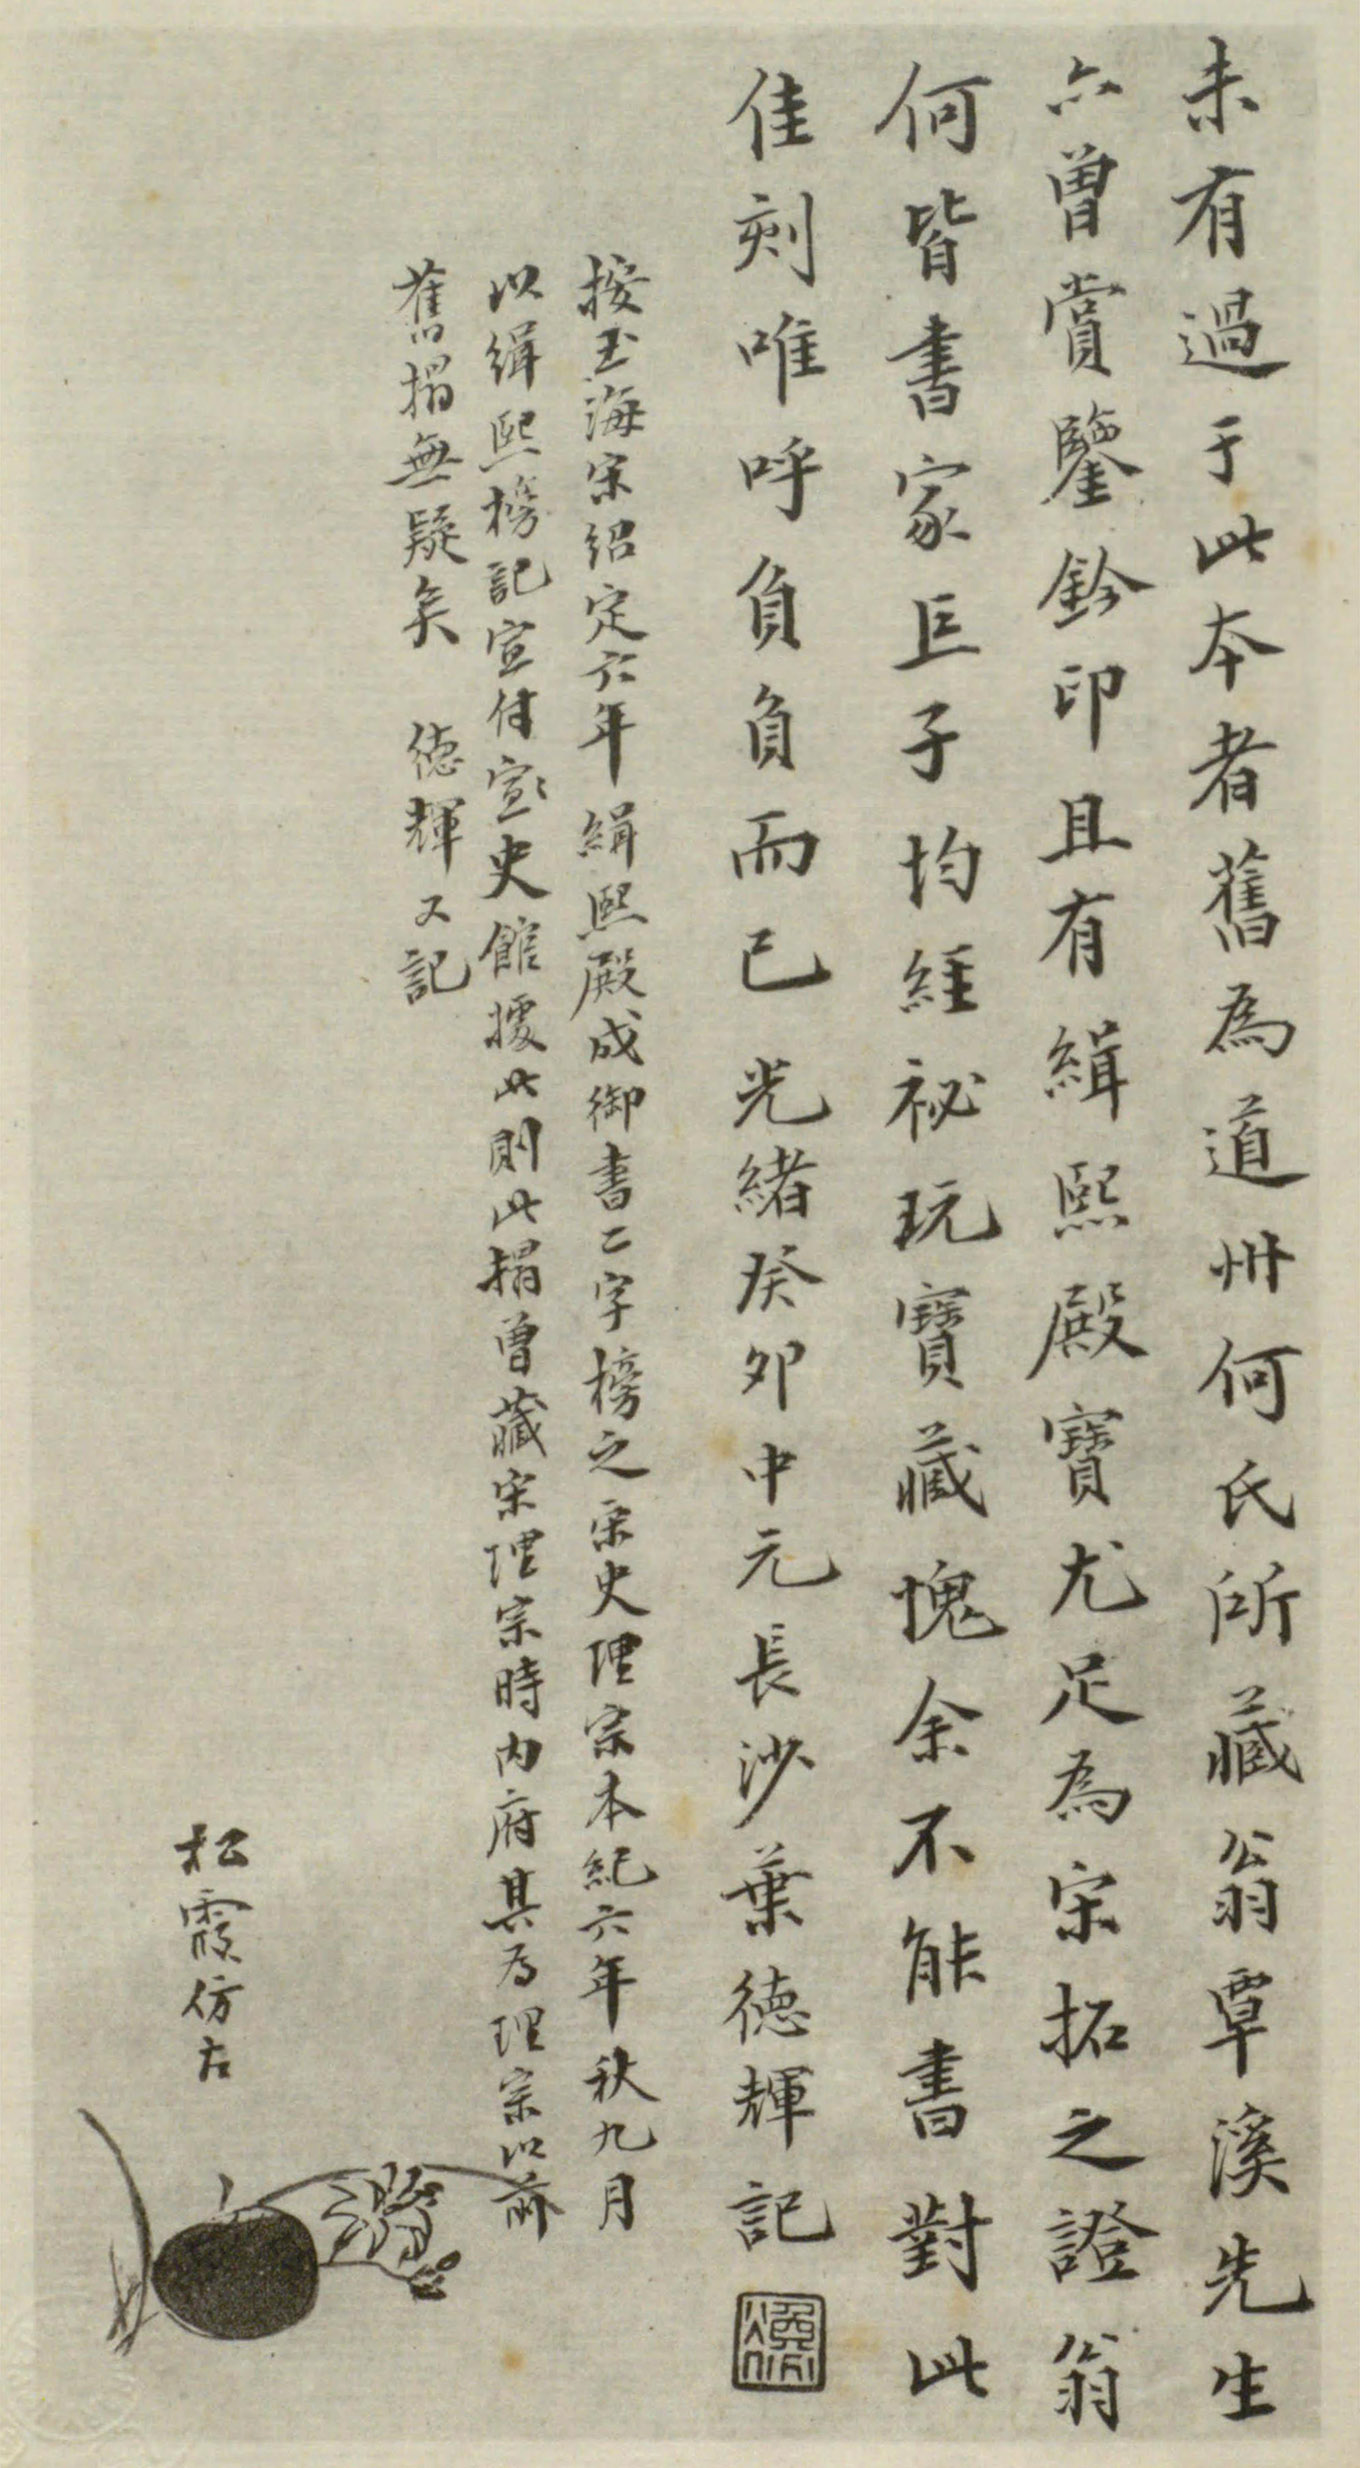 未有過于此本者舊為道州何氏所藏翁覃溪先生
亦曾賞鑒鈐印且有緝熙殿寶尤足為宋拓之證翁
何皆書家巨子均經祕玩寶藏愧余不能書對此
佳刻唯呼負負而已光緒癸卯中元長沙葉德輝記
按玉海宋紹定六年緝熙殿成御書二字榜之宋史理宗本紀六年秋九月
以緝熙榜記宣付宣史館據此則此搨曾藏宋理宗時內府其為理宗以前
舊搨無疑矣 德輝又記
松霞仿古